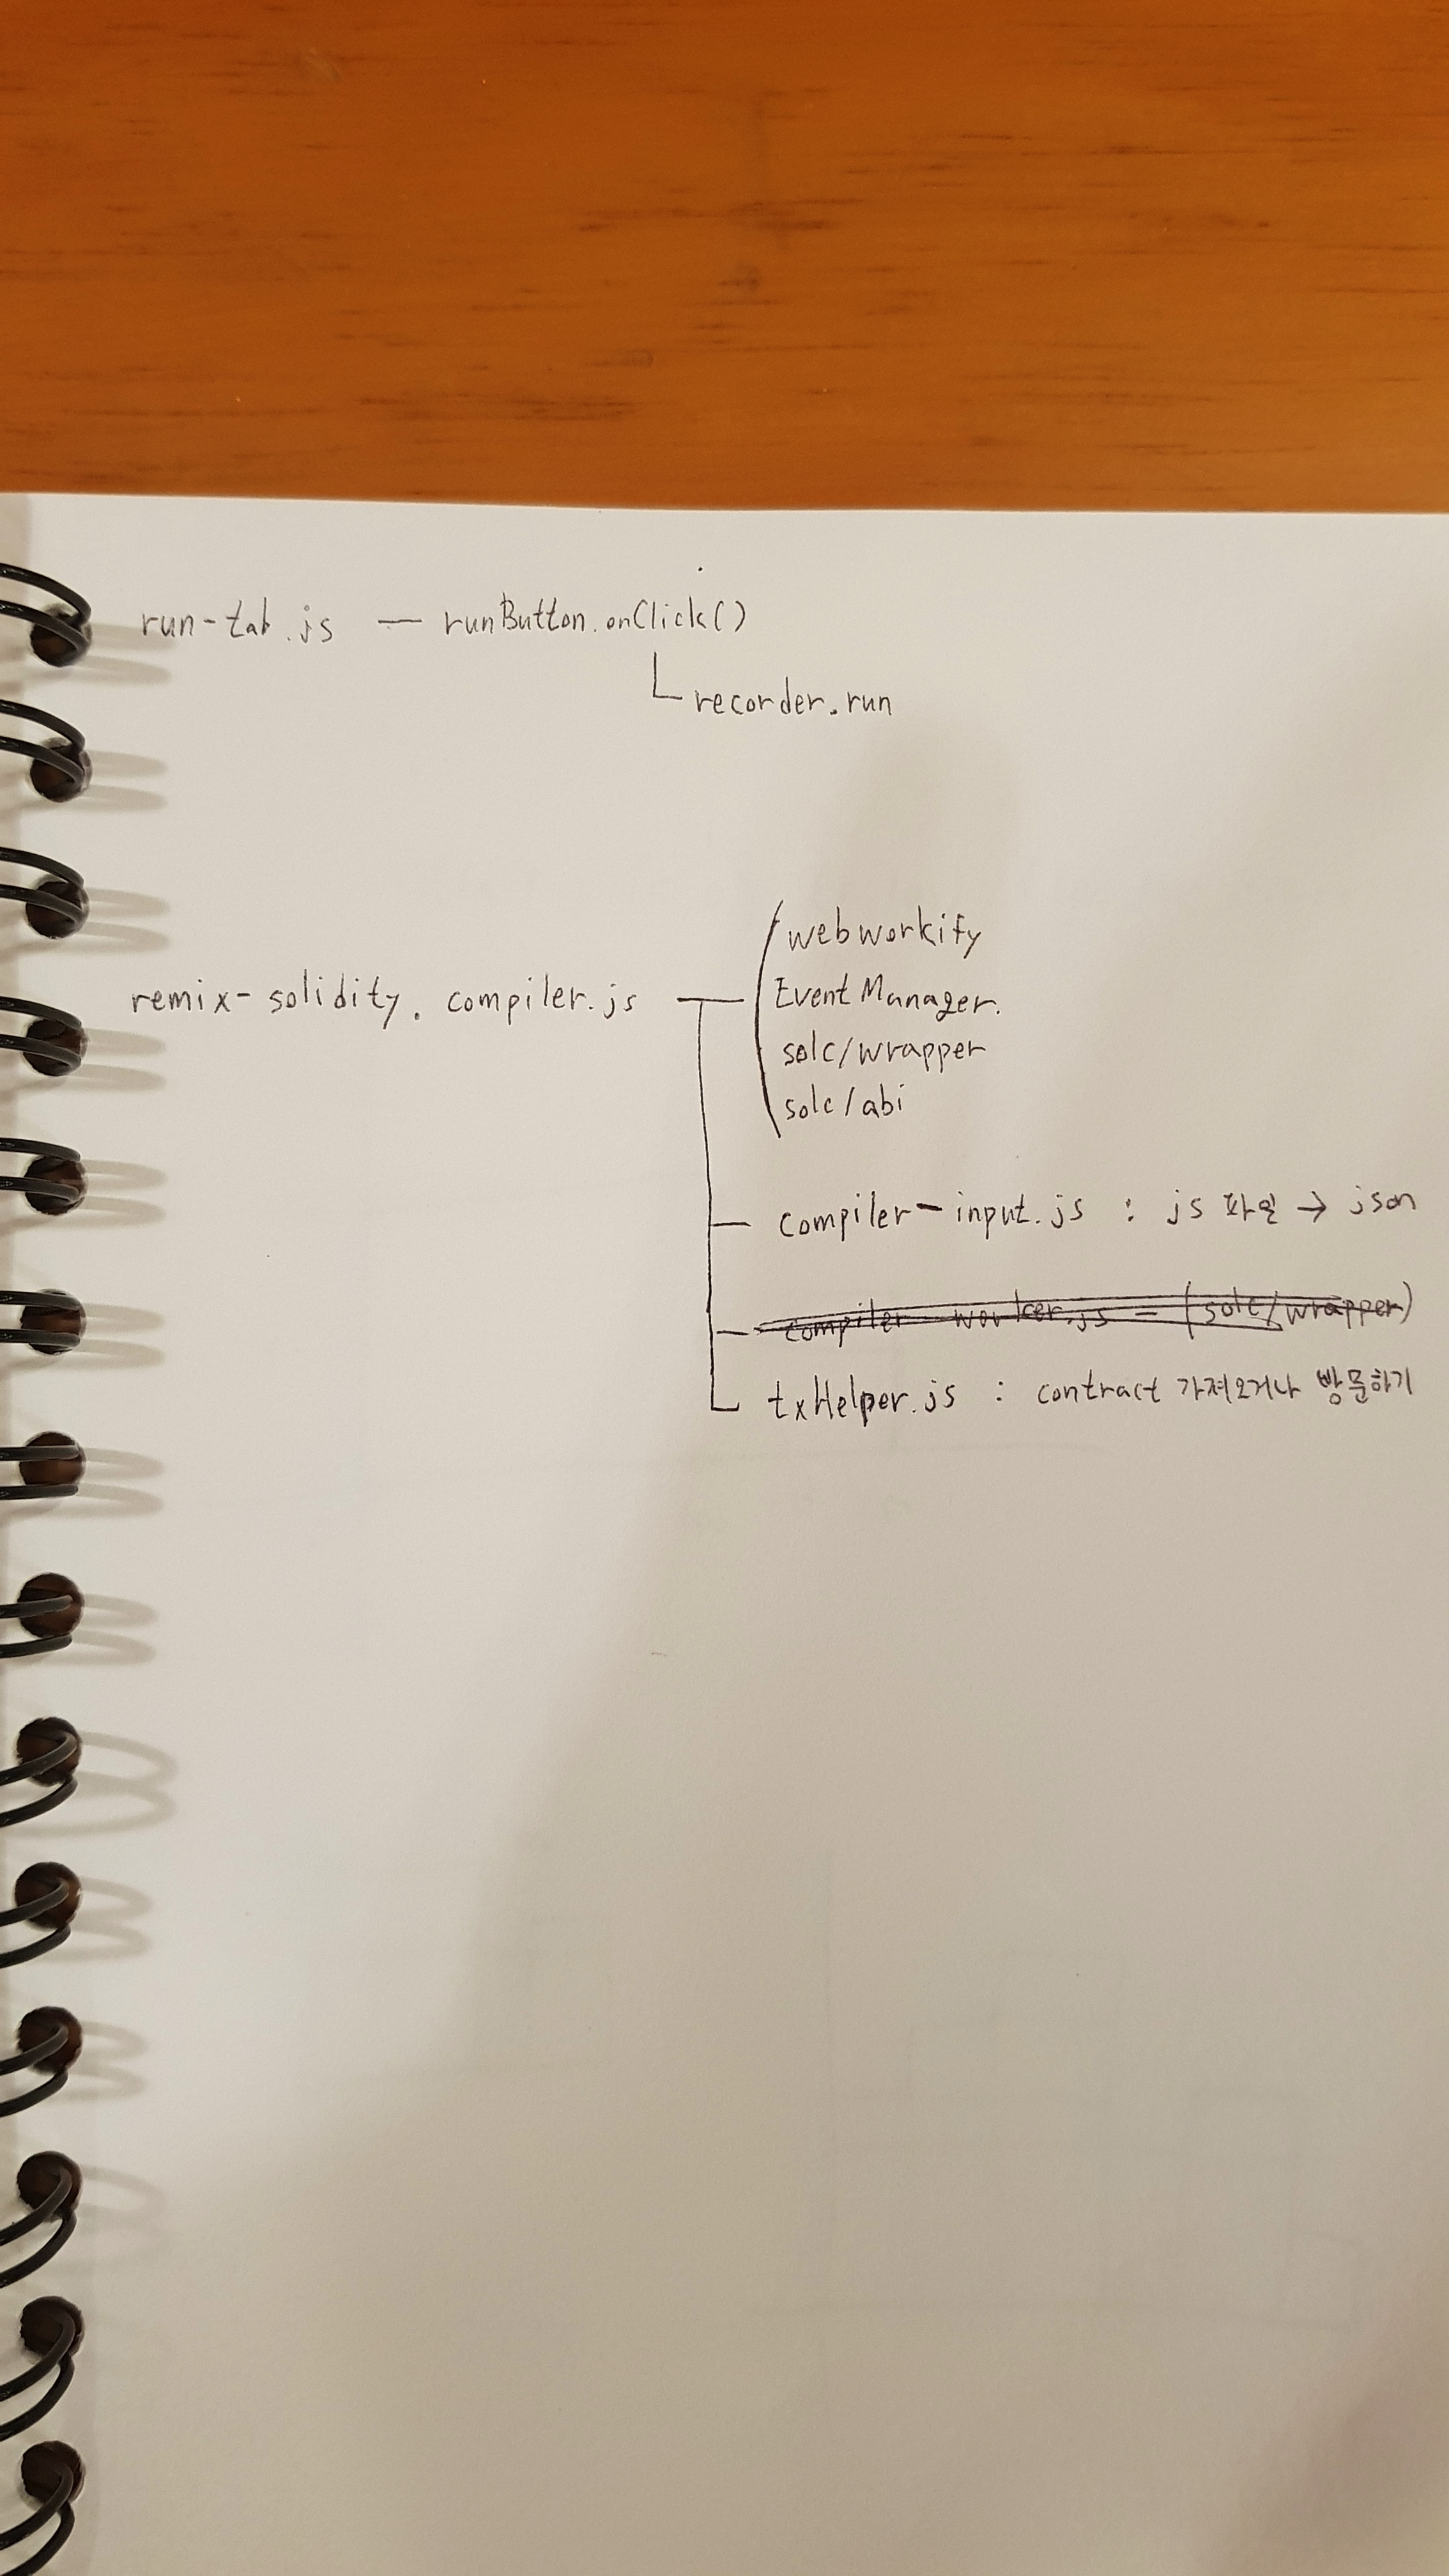 run-tab.js — runButton.onClick()
recorder.run
webworkify
remix-solidity. compiler.js
EventManager.
solc/wrapper
solc/abi
compiler-input.js : js 파일 → json
compiler-worker.js - (solc/wrapper)
txHelper.js : contract 가져오거나 방문하기